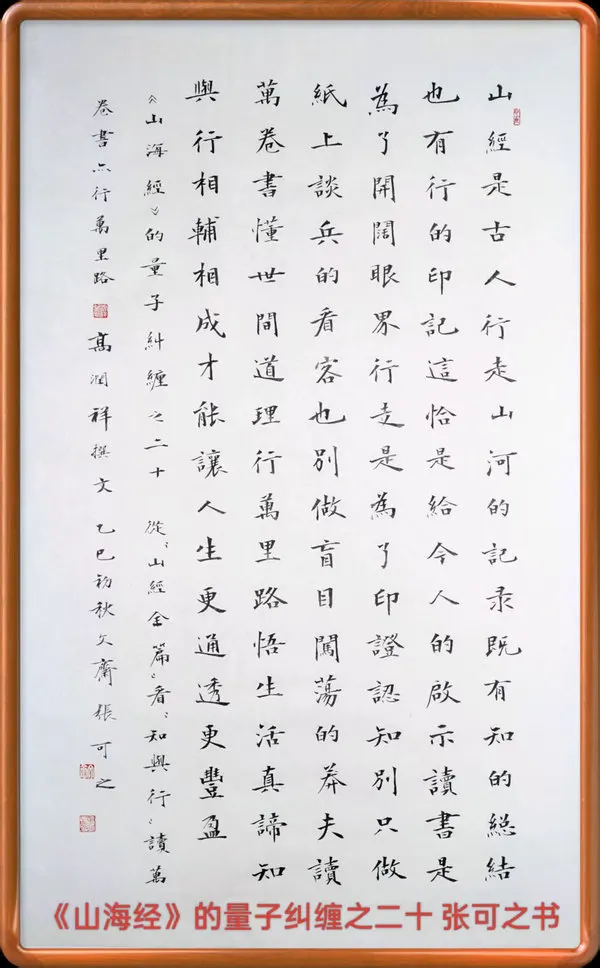 山經是古人行走山河的記录既有知的総結
也有行的印記這恰是給今人的啟示讀書是
為了開闊眼界行走是為了印證認知別只做
紙上談兵的看客也別做盲目闖蕩的莽夫讀
萬卷書懂世間道理行萬里路悟生活真諦知
與行相輔相成才能讓人生更通透更豐盈
《山海經》的量子糾纏之二十 從“山經全篇”看“知與行”讀萬
卷書亦行萬里路 高潤祥撰文 乙巳初秋文齋張可之
《山海经》的量子纠缠之二十 张可之书